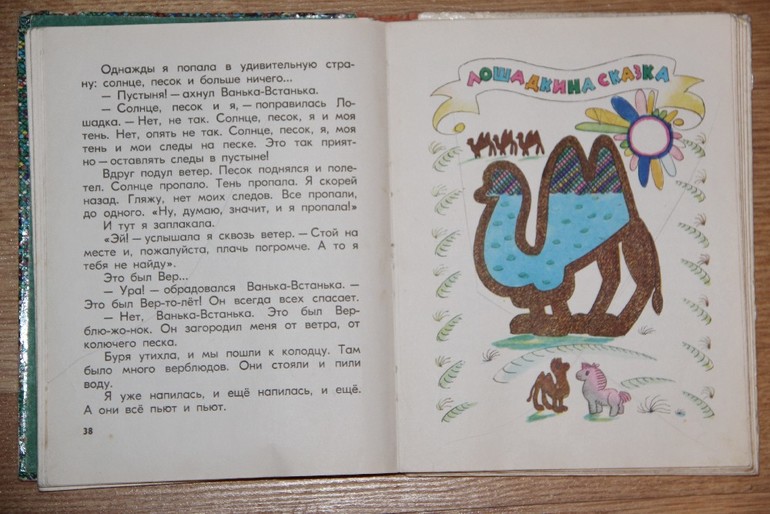 Однажды я попала в удивительную стра-
ну: солнце, песок и больше ничего...
— Пустыня! — ахнул Ванька-Встанька.
— Солнце, песок и я, — поправилась Ло-
шадка. — Нет, не так. Солнце, песок, я и моя
тень. Нет, опять не так. Солнце, песок, я, моя
тень и мои следы на песке. Это так прият-
но — оставлять следы в пустыне!
Вдруг подул ветер. Песок поднялся и поле-
тел. Солнце пропало. Тень пропала. Я скорей
назад. Гляжу, нет моих следов. Все пропали,
до одного. «Ну, думаю, значит, и я пропала!»
И тут я заплакала.
«Эй! — услышала я сквозь ветер. — Стой на
месте и, пожалуйста, плачь погромче. А то я
тебя не найду».
Это был Вер...
— Ура! — обрадовался Ванька-Встанька. —
Это был Вер-то-лёт! Он всегда всех спасает.
— Нет, Ванька-Встанька. Это был Вер-
блю-жо-нок. Он загородил меня от ветра, от
колючего песка.
Буря утихла, и мы пошли к колодцу. Там
было много верблюдов. Они стояли и пили
воду.
Я уже напилась, и ещё напилась, и ещё.
А они всё пьют и пьют.
38
ЛОШАДКИНА СКАЗКА